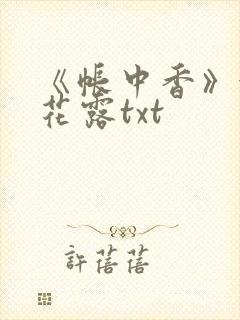 《帳中香》
花露txt
許蓓蓓